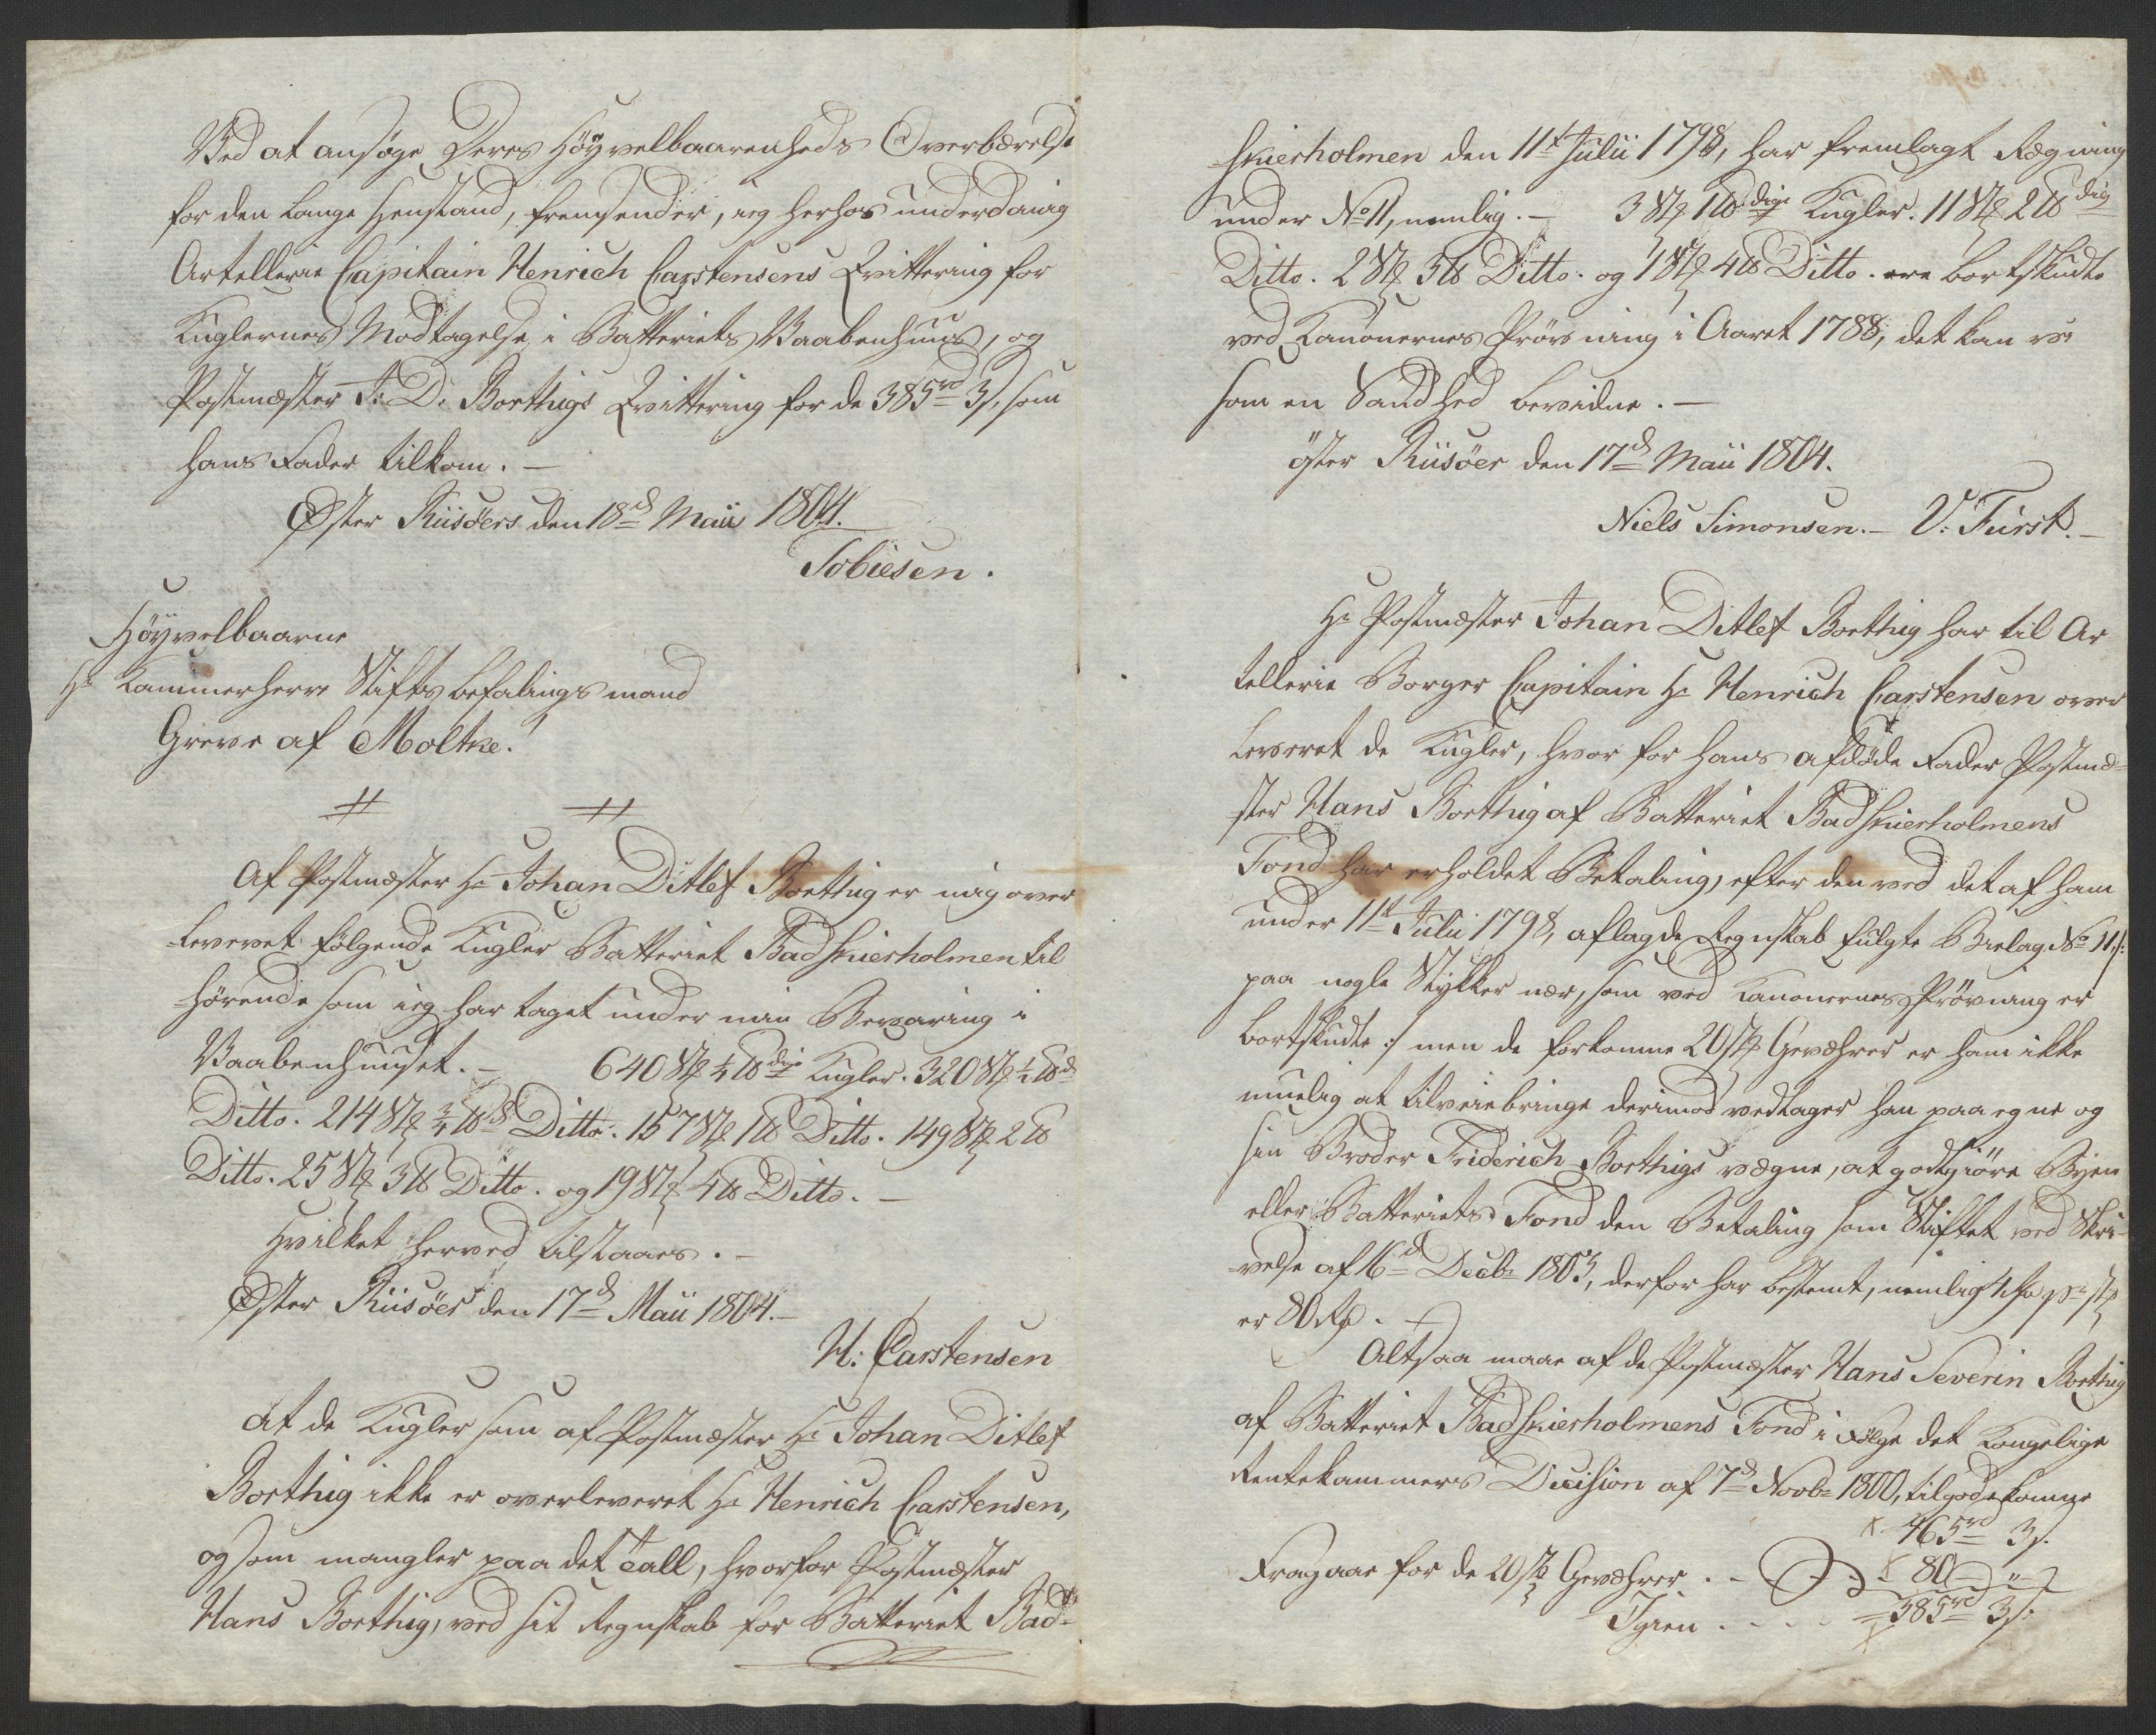 Ved at ansøge Deres Höyvelbaarenheds Overbærelse
for den lange Henstand, fremsender, ieg herhos underdanig
Artellerie Capitain Henrich Carstensens Qvittering for
Kuglernes Modtagelse i Batteriets Vaabenhuus, og
Postmester J: D: Boethigs Qvittering for de 385rd 3s. som
hans Fader tilkom. —
Øster Riisöers den 18d Maii 1804.
Tobiesen.
Höyvelbaarne
Hr Kammerherre Stiftsbefalingsmand
Greve af Moltke.
Af Postmester Hr Johan Ditlef Boethig er mig over
leveret følgende Kugler Batteriet Badskierholmen til
hørende som ieg har taget under min Bevaring i
Vaabenhuuset. — 640 Stk ½ ℔dige Kugler. 320 Stk ½ ℔d
Ditto. 214 Stk ¾ ℔d Ditto. 157 Stk 1 ℔ Ditto. 149 Stk 2 ℔
Ditto. 25 Stk 3 ℔ Ditto. og 19 Stk 4 ℔ Ditto. —
Hvilket herved tilstaaes. —
Øster Riisöer den 17d Maii 1804. —
H: Carstensen
At de Kugler som af Postmester Hr Johan Ditlef
Boethig ikke er overleveret Hr Henrich Carstensen,
og som mangler paa det Tall, hvorfor Postmester
Hans Boethig, ved sit Regnskab for Batteriet Bad-
skierholmen den 11t Julii 1798, har fremlagt Regning
under No 11, nemlig. — 3 Stk 1 ℔dige Kugler. 11 Stk 2 ℔dig
Ditto. 2 Stk 3 ℔ Ditto. og 1 Stk 4 ℔ Ditto. ere bortskudte
ved Kanonernes Prøvning i Aaret 1788, det kan vi
som en Sandhed bevidne. —
öster Riisöer den 17d Maii 1804.
Niels Simonsen. — V: Fürst. —
Hr Postmester Johan Ditlef Boethig har til Ar
tellerie Borger Capitain Hr Henrich Carstensen over
leveret de Kugler, hvor for hans afdøde Fader Postme-
ster Hans Boethig af Batteriet Badskierholmens
Fond har erholdet Betaling, efter den ved det af ham
under 11t Julii 1798, aflagde Regnskab fulgte Bielag No 11 /:
paa nogle Stykker nær, som ved Kanonernes Prøvning er
bortskudte :/ men de forkomne 20 stk Geværer er ham ikke
muelig at tilveiebringe derimod vedtager han paa egne og
sin Broder Friderich Boethigs vegne, at godtgiøre Byen
eller Batteriets Fond den Betaling som Stiftet ved Skri-
velse af 16d Decbr 1803, derfor har bestemt, nemlig 4 pr stk
er 80 Rd. —
Altsaa maae afde Postmester Hans Severin Boethig
af Batteriet Badskierholmens Fond i Følge det Kongelige
Rentekammers Decision af 7d Novbr 1800, tilgodekomme
465rd 3s.
Fragaar for de 20 stk Geværer. — 80 — " —
Igien . . . . 385rd 3s.